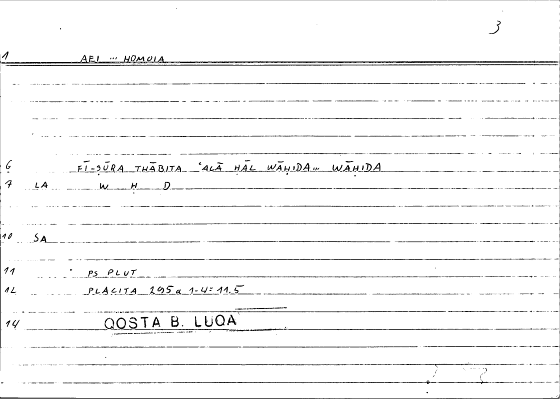 3
1 AEI ... HOMOIA
6 FĪ-ṢŪRA THĀBITA ʿALĀ ḤĀL WĀḤIDA... WĀḤIDA
7 LA W Ḥ D
10 SA
11 PS PLUT
12 PLACITA 295a 1-4=11.5
14 QOSTA B. LUQA